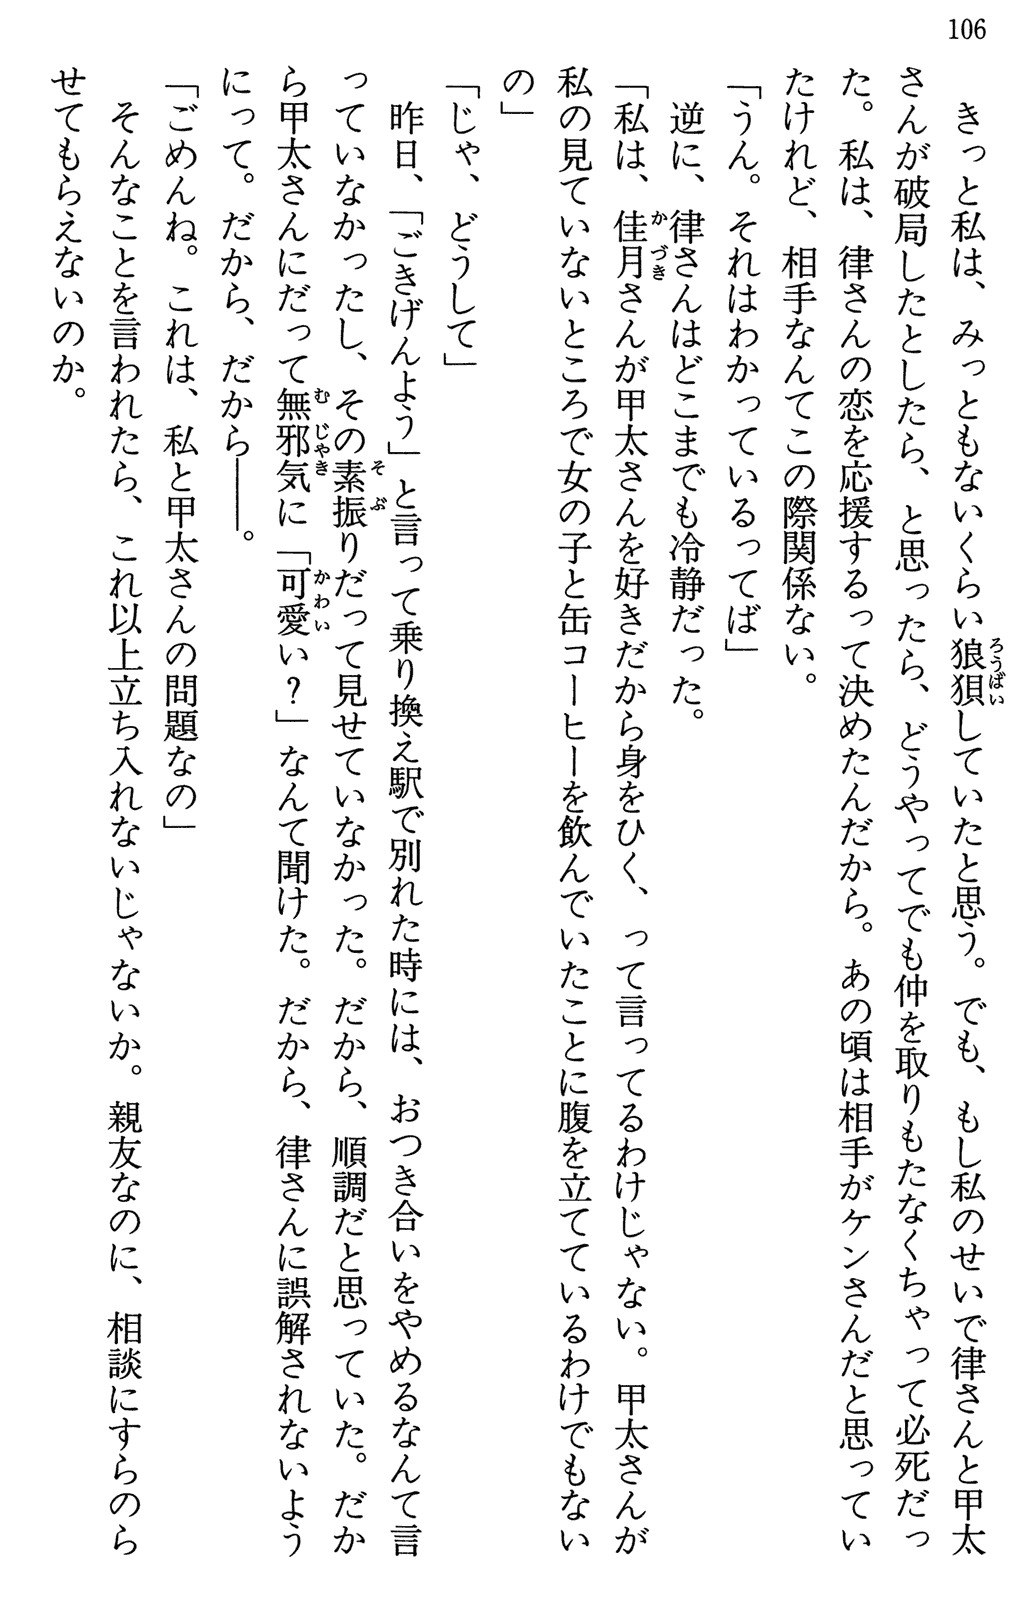 106
きっと私は、みっともないくらい狼狽していたと思う。でも、もし私のせいで律さんと甲太
さんが破局したとしたら、と思ったら、どうやってでも仲を取りもたなくちゃって必死だっ
た。私は、律さんの恋を応援するって決めたんだから。あの頃は相手がケンさんだと思ってい
たけれど、相手なんてこの際関係ない。
「うん。それはわかっているってば」
逆に、律さんはどこまでも冷静だった。
「私は、佳月さんが甲太さんを好きだから身をひく、って言ってるわけじゃない。甲太さんが
私の見ていないところで女の子と缶コーヒーを飲んでいたことに腹を立てているわけでもない
の」
「じゃ、どうして」
昨日、「ごきげんよう」と言って乗り換え駅で別れた時には、おつき合いをやめるなんて言
っていなかったし、その素振りだって見せていなかった。だから、順調だと思っていた。だか
ら甲太さんにだって無邪気に「可愛い？」なんて聞けた。だから、律さんに誤解されないよう
にって。だから、だから――。
「ごめんね。これは、私と甲太さんの問題なの」
そんなことを言われたら、これ以上立ち入れないじゃないか。親友なのに、相談にすらのら
せてもらえないのか。